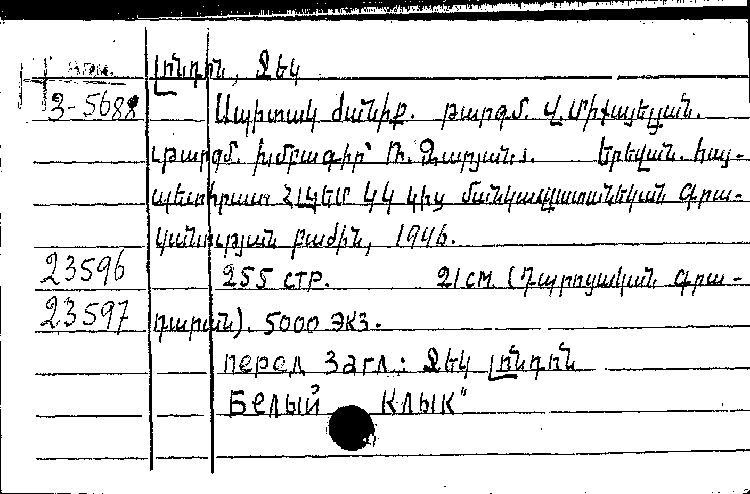 Լոնդոն, Ջեկ
3-5688 Սպիտակ ժանիք. թարգմ. Վ. Միքայելյան.
թարգմ. խմբագիր՝ Ռ. Զարյան. Երևան. հայ-
պետհրատ ՀԼԿԵՄ ԿԿ կից մանկապատանեկան գրա-
կանության բաժին, 1946.
23596 255 стр. 21 см. (Դպրոցական գրա-
23597 դարան). 5000 экз.
перед загл.: Ջեկ Լոնդոն
Белый Клык"